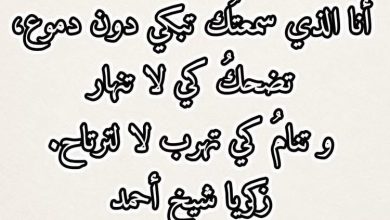 أنا الذي سمعتَك تبكي دون دموع،
تضحكُ كي لا تنهار
و تنامُ كي تهرب لا لترتاح.
زكريا شيخ أحمد